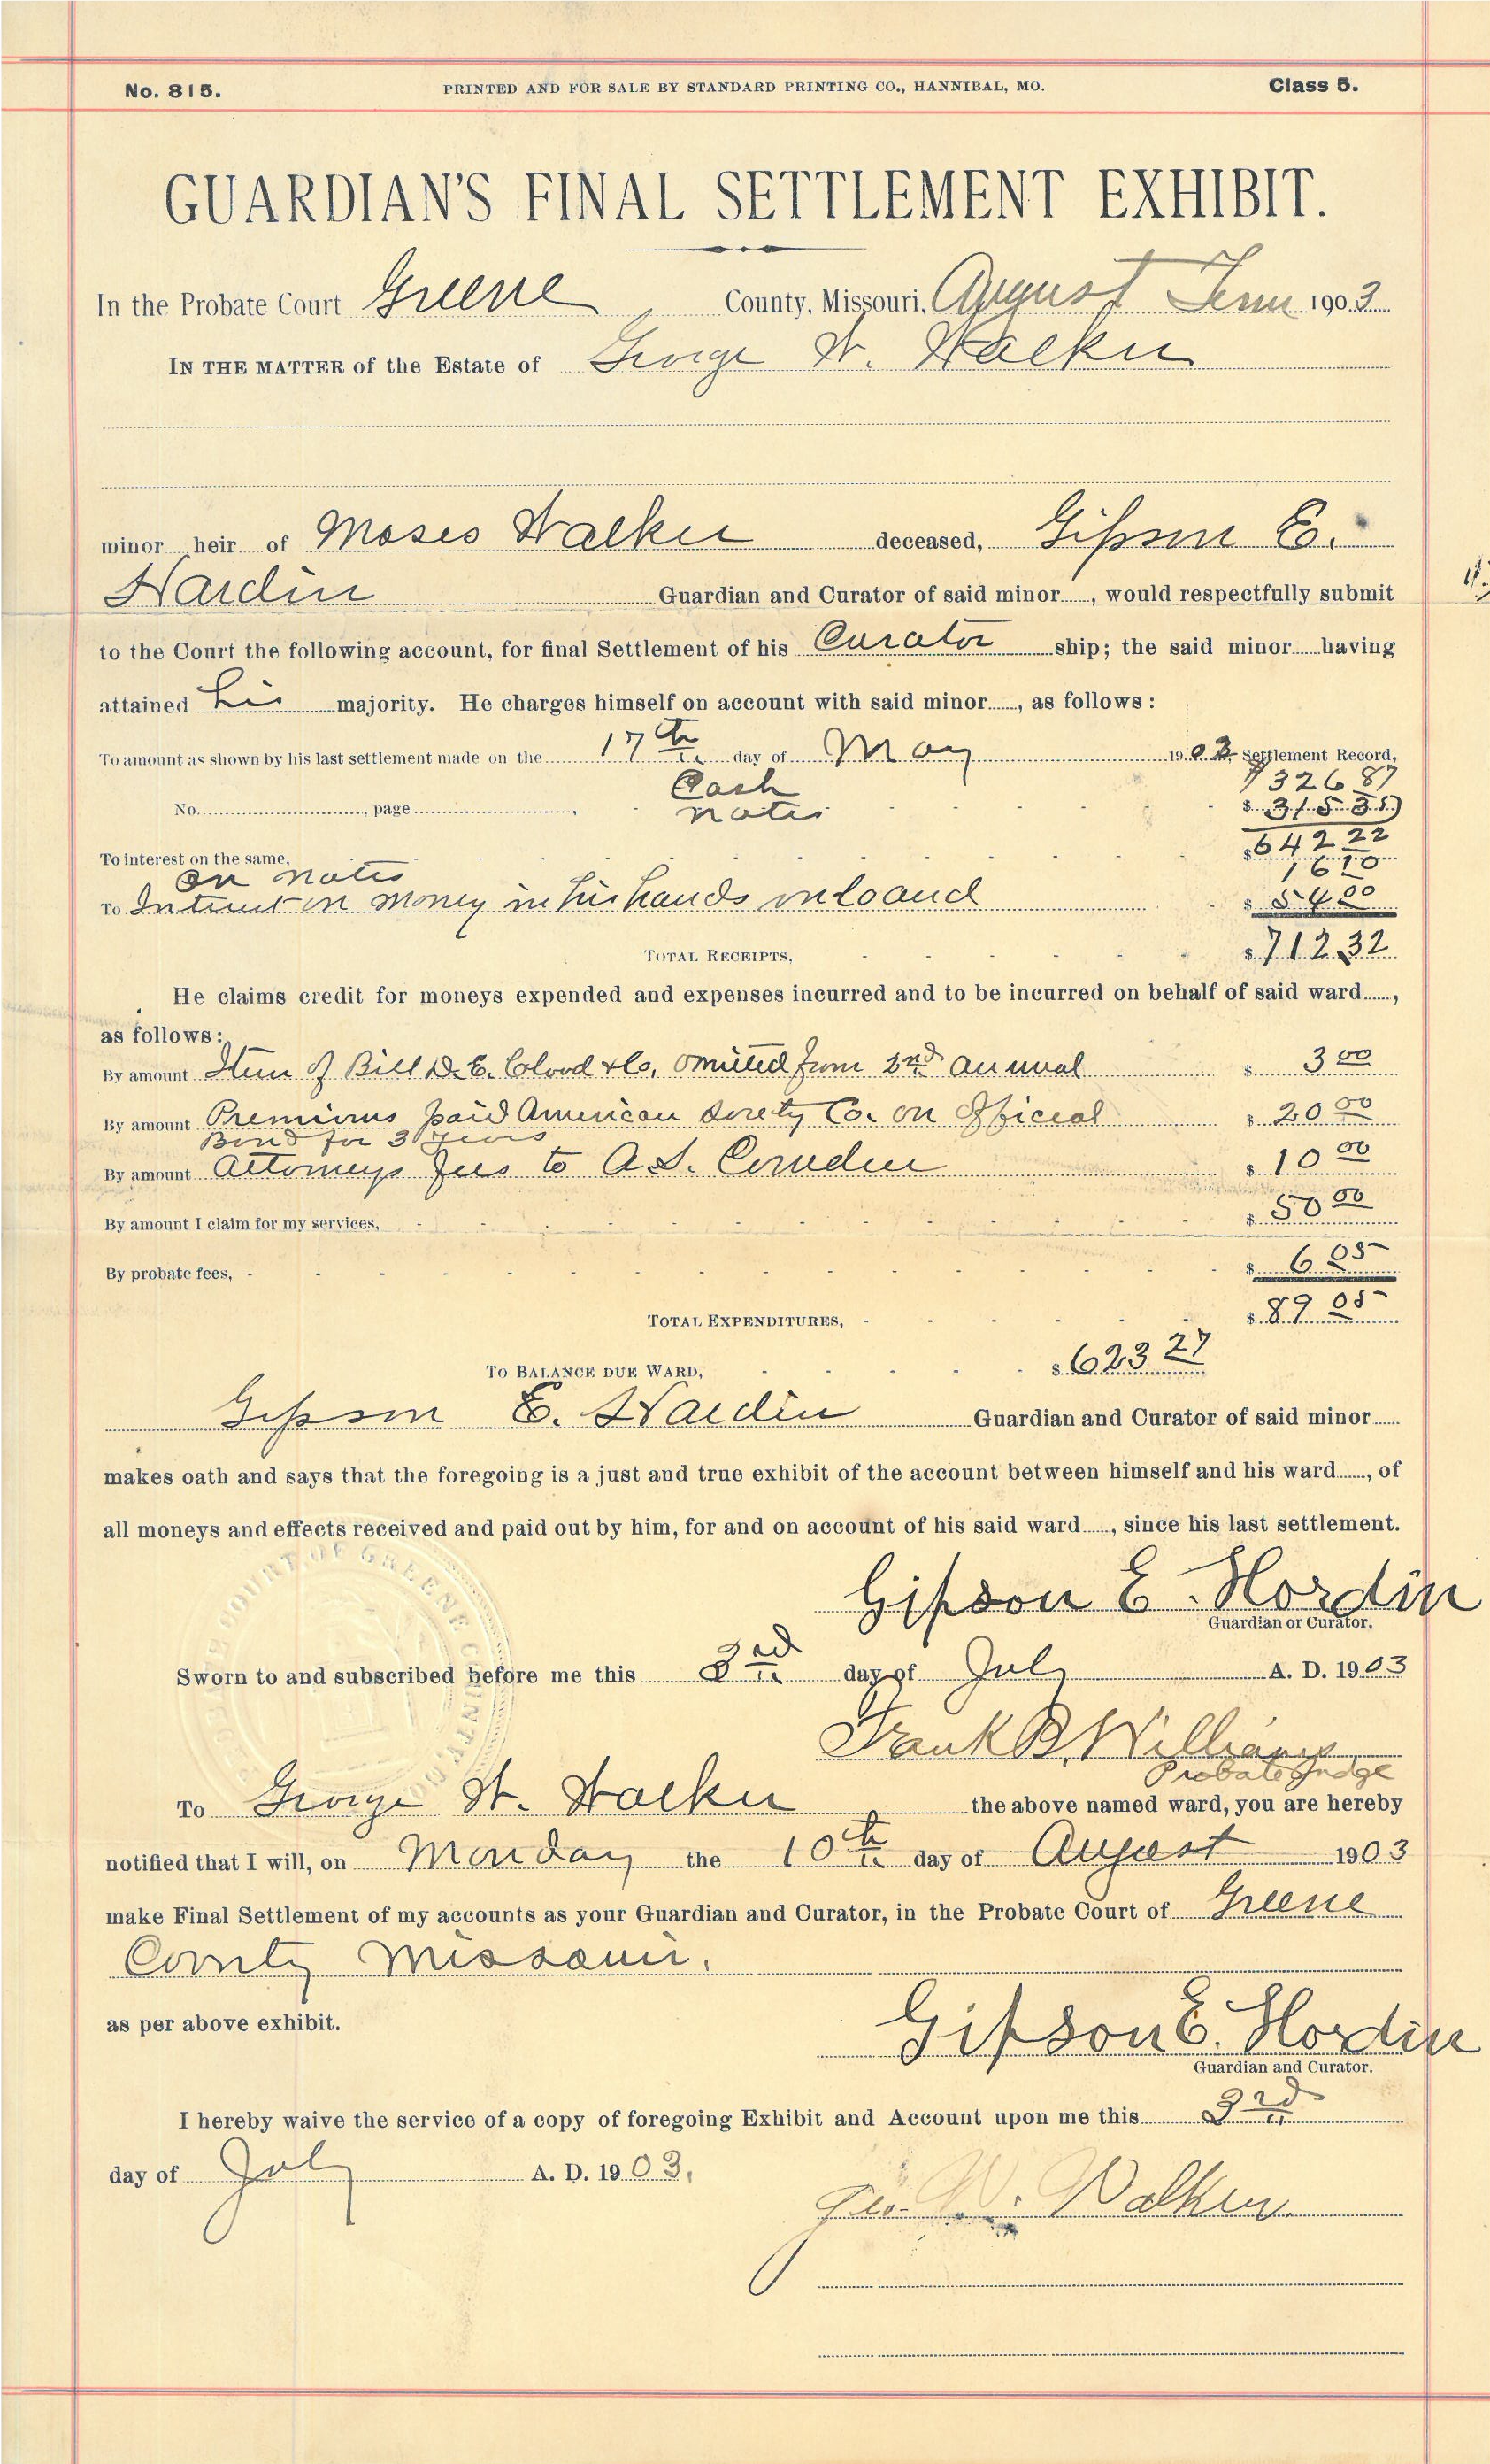 No. 815. PRINTED AND FOR SALE BY STANDARD PRINTING CO., HANNIBAL, MO. Class 5.
GUARDIAN'S FINAL SETTLEMENT EXHIBIT.
In the Probate Court Greene County, Missouri, August Term 1903
IN THE MATTER of the Estate of George W. Walker
minor heir of Moses Walker deceased, Gipson E.
Hardin Guardian and Curator of said minor......, would respectfully submit
to the Court the following account, for final Settlement of his Curator ship; the said minor......having
attained his majority. He charges himself on account with said minor......, as follows:
To amount as shown by his last settlement made on the 17th day of May 190 Settlement Record,
Cash $326 87
No. , page , notes $ 315 35
$642 22
To interest on the same,
on notes 16 10
To Interest on money in his hands unloand $ 54 00
TOTAL RECEIPTS, $ 712.32
He claims credit for moneys expended and expenses incurred and to be incurred on behalf of said ward......,
as follows:
By amount Item of Bill D.E. & Co, omitted from 2nd annual $ 3 00
By amount Premiums paid American Surety Co. on official $ 20 00
Bond for 3 years
By amount Attorneys fees to A.S. $ 10 00
By amount I claim for my services, $ 50 00
By probate fees, $ 6 05
TOTAL EXPENDITURES, $ 89 05
TO BALANCE DUE WARD, $ 623 27
Gipson E. Hardin Guardian and Curator of said minor......
makes oath and says that the foregoing is a just and true exhibit of the account between himself and his ward......, of
all moneys and effects received and paid out by him, for and on account of his said ward......, since his last settlement.
COURT OF GREENE COUNTY
Gipson E. Hordin
Guardian or Curator.
Sworn to and subscribed before me this 3rd day of July A. D. 1903
Frank B. Williams
Probate Judge
To George W. Walker the above named ward, you are hereby
notified that I will, on Monday the 10th day of August 1903
make Final Settlement of my accounts as your Guardian and Curator, in the Probate Court of Greene
County Missouri.
as per above exhibit. Gipson E. Hordin
Guardian and Curator.
I hereby waive the service of a copy of foregoing Exhibit and Account upon me this 3rd
day of July A. D. 1903.
Geo. W. Walker.